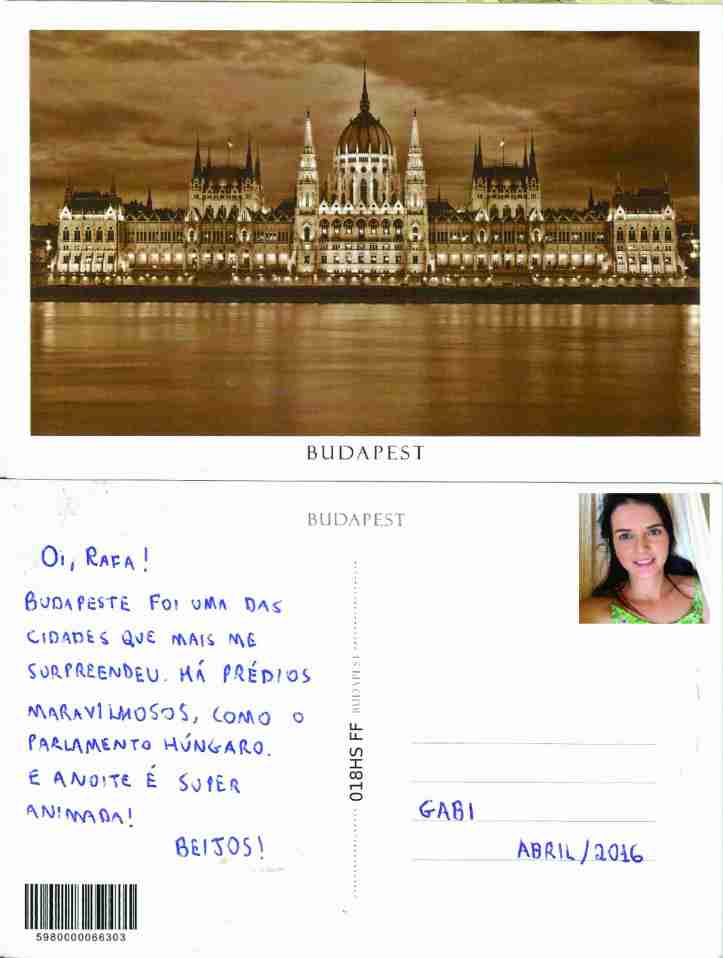 BUDAPEST
BUDAPEST
OI, RAFA!
BUDAPESTE FOI UMA DAS
CIDADES QUE MAIS ME
SURPREENDEU. HÁ PRÉDIOS
MARAVILHOSOS, COMO O
PARLAMENTO HÚNGARO.
E A NOITE É SUPER
ANIMADA!
BEIJOS!
BUDAPEST
018HS FF
GABI
ABRIL/2016
5980000066303